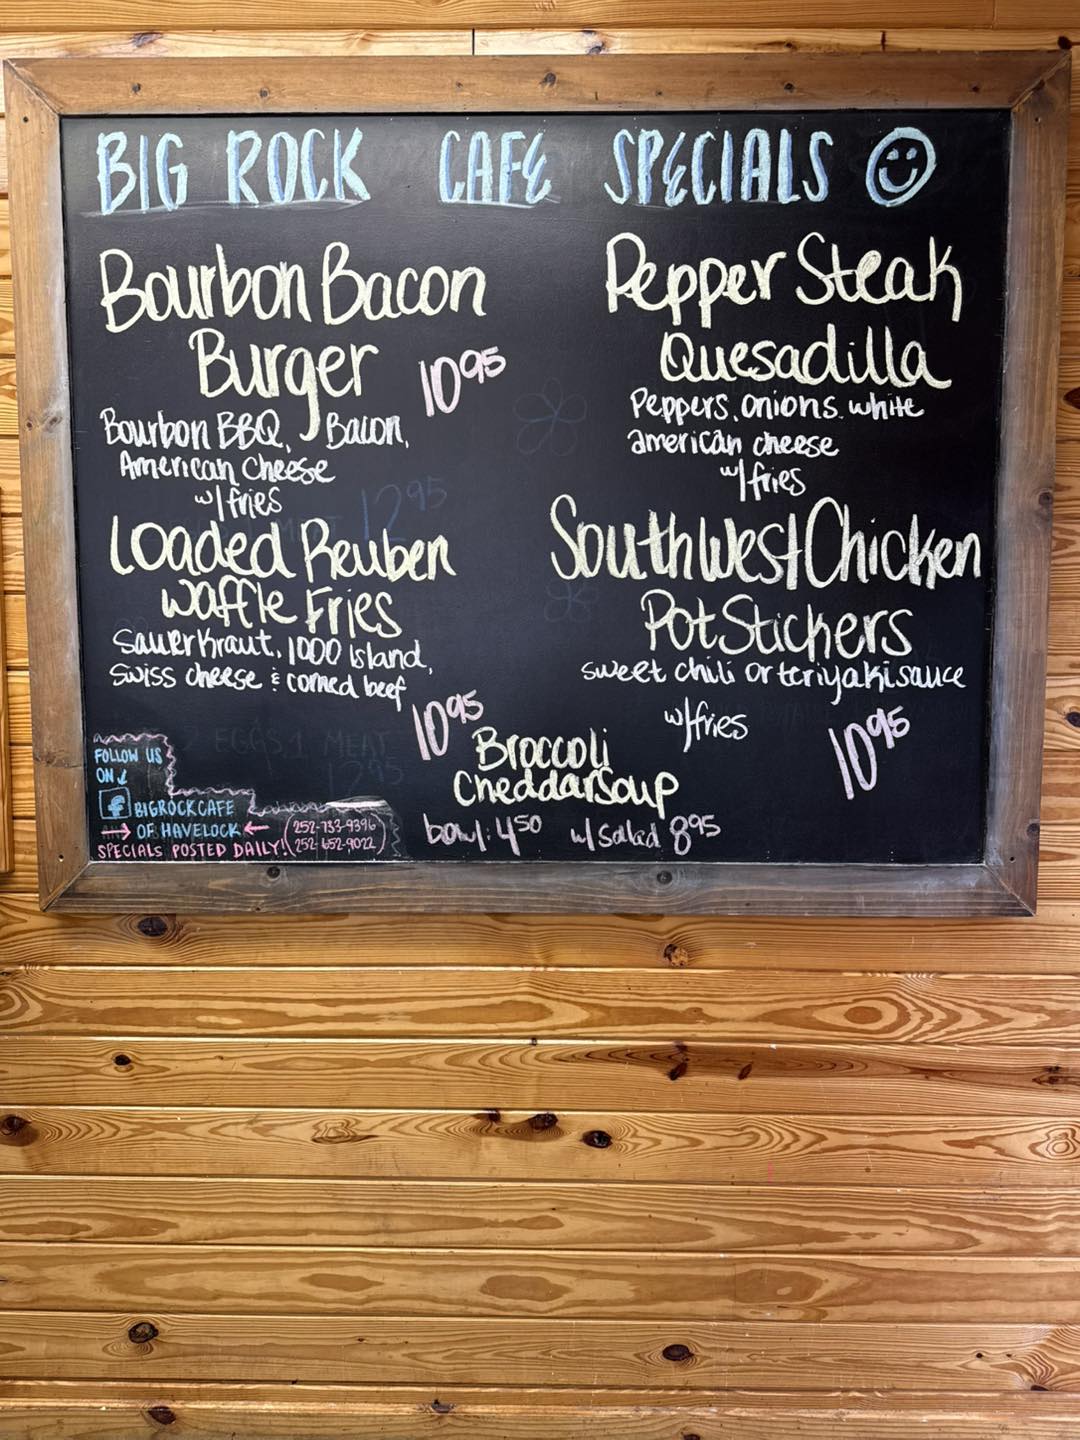 BIG ROCK CAFE SPECIALS
Bourbon Bacon
Burger 10 95
Bourbon BBQ, Bacon,
American Cheese
w/fries
Loaded Reuben
Waffle Fries
Sauerkraut, 1000 Island,
Swiss cheese & corned beef
10 95
Pepper Steak
Quesadilla
Peppers, onions, white
american cheese
w/fries
SouthWest Chicken
PotStickers
sweet chili or teriyaki sauce
w/fries
10 95
Broccoli
Cheddar soup
bowl: 4 50 w/salad 8 95
FOLLOW US
ON
f BIGROCKCAFE
OF HAVELOCK
SPECIALS POSTED DAILY!
252-733-9396
252-652-9022
12 95
EGGS 1 MEAT
12 95